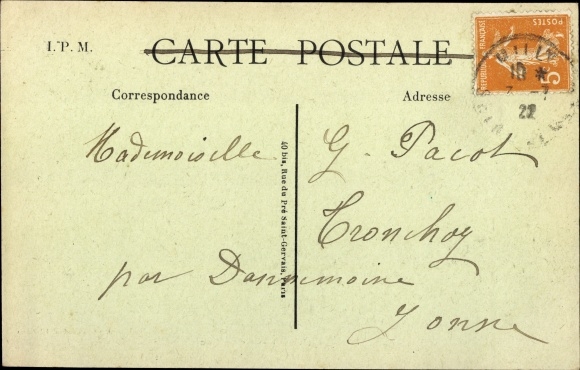 I.P.M.
CARTE POSTALE
Correspondance
Adresse
REPUBLIQUE FRANÇAISE
POSTES
5
10 *
7 - 7
22
Mademoiselle G. Pacot
Tronchoy
par Dannemoine
Yonne
40 bis, Rue du Pré Saint-Gervais, Paris